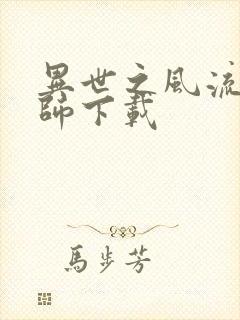 異世之風流
師下載
馬步芳